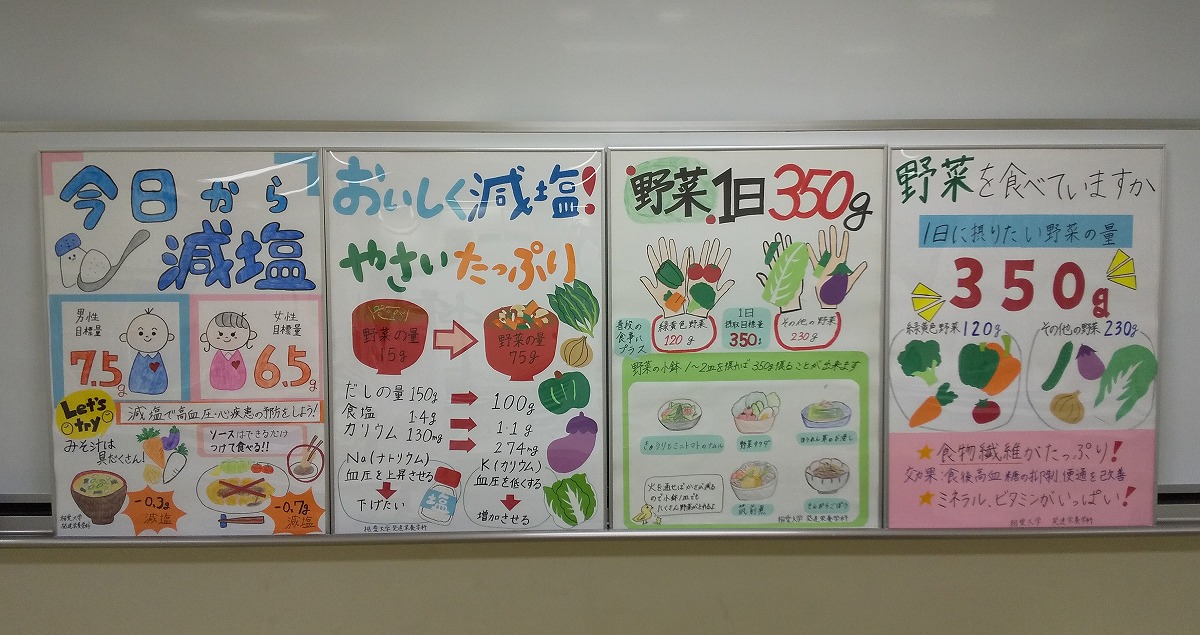 今日から
減塩
男性
目標量
7.5g
女性
目標量
6.5g
Let's
try
減塩で高血圧・心疾患の予防をしよう!
みそ汁は
具だくさん!
-0.3g
減塩
ソースはできるだけ
つけて食べる!!
-0.7g
減塩
相愛大学
発達栄養学科
おいしく減塩!
やさいたっぷり
野菜の量
15g
野菜の量
75g
だしの量 150g 100g
食塩 1.4g 1.1g
カリウム 130mg 274mg
Na(ナトリウム)
血圧を上昇させる
下げたい
塩
K(カリウム)
血圧を低くする
増加させる
相愛大学 発達栄養学科
野菜1日350g
普段の
食事に
プラス
緑黄色野菜
120g
1日
摂取目標量
350g
その他の野菜
230g
野菜の小鉢1~2皿を摂れば350g摂ることが出来ます
きゅうりとミニトマトのナムル
野菜サラダ
ほうれん草のお浸し
火を通せばかさが減る
ので小鉢1皿でも
たくさん野菜がとれるよ
筑前煮
きんぴらごぼう
相愛大学 発達栄養学科
野菜を食べていますか
1日に摂りたい野菜の量
350g
緑黄色野菜120g
その他の野菜230g
食物繊維がたっぷり!
効果・食後高血糖の抑制、便通を改善
ミネラル、ビタミンがいっぱい!
相愛大学 発達栄養学科